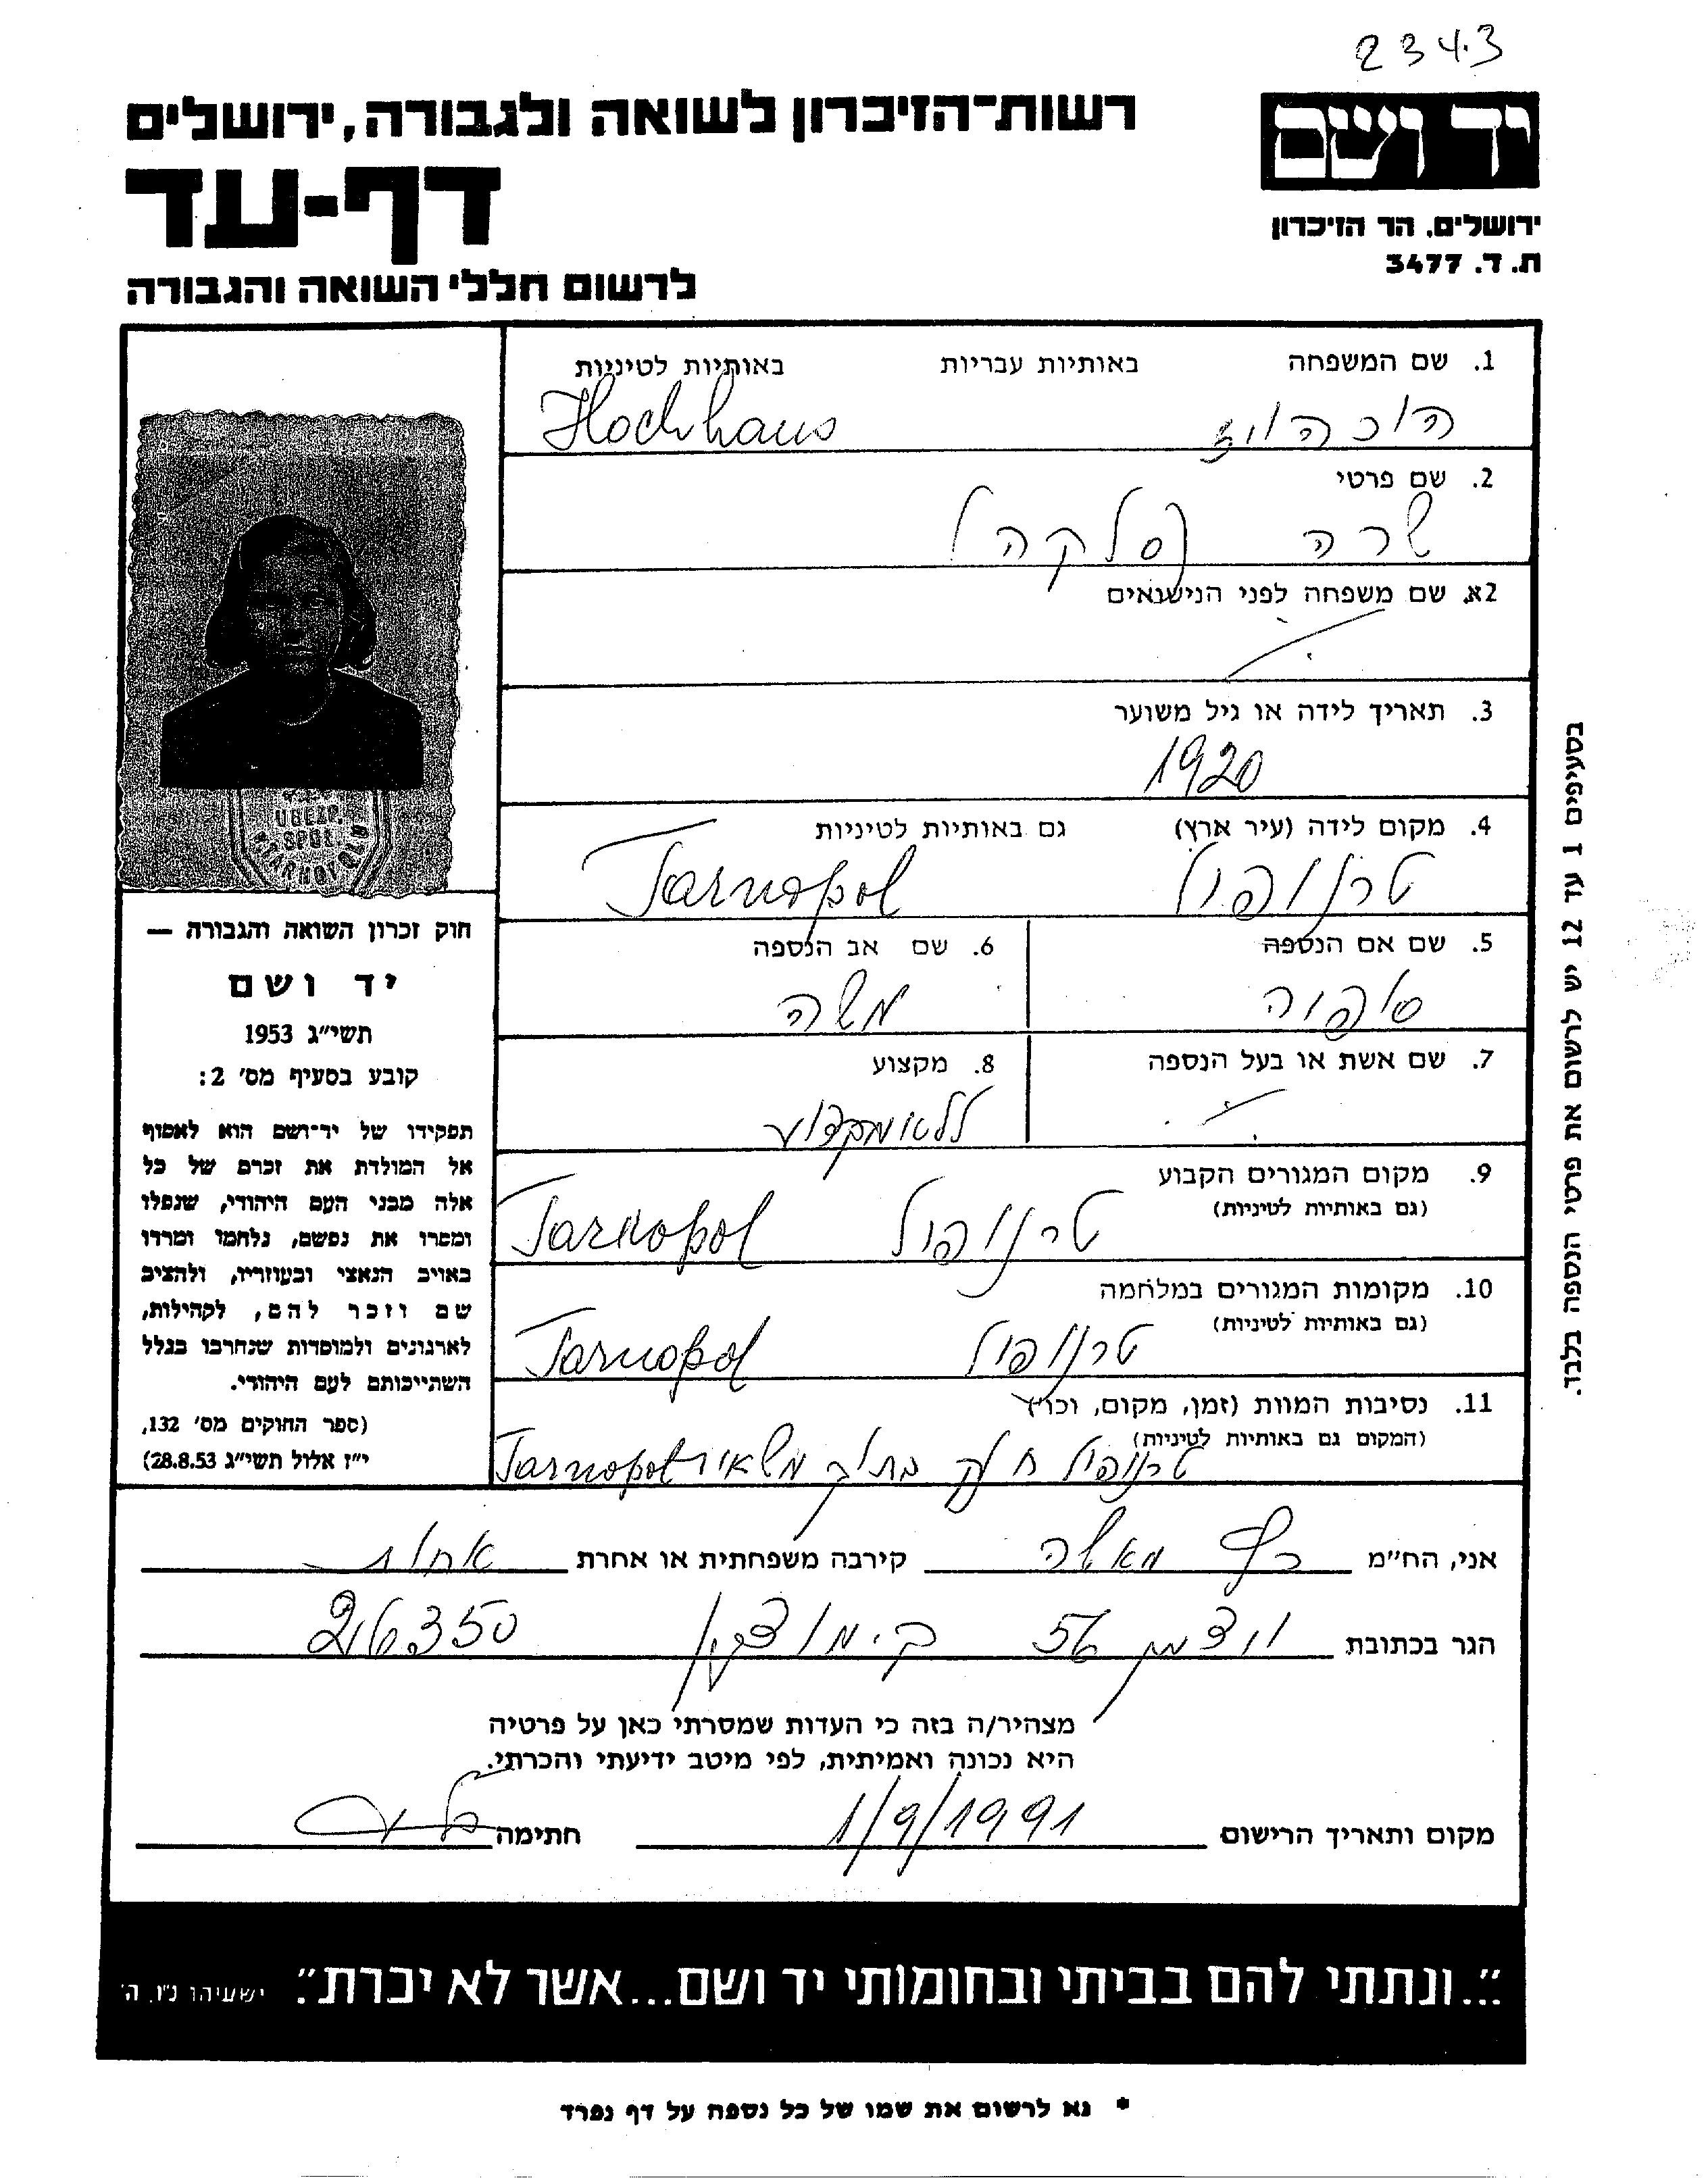 2343
רשות־הזיכרון לשואה ולגבורה, ירושלים
יד ושם
דף-עד
ירושלים, הר הזיכרון
ת. ד. 3477
לרשום חללי השואה והגבורה
1. שם המשפחה באותיות עבריות באותיות לטיניות
הוכהויז Hochhaus
2. שם פרטי
שרה (סלקה)
2א. שם משפחה לפני הנישואים
3. תאריך לידה או גיל משוער
1920
4. מקום לידה (עיר ארץ) גם באותיות לטיניות
טרנופול Tarnopol
5. שם אם הנספה
6. שם אב הנספה
משה
7. שם אשת או בעל הנספה
8. מקצוע
ללא מקצוע
9. מקום המגורים הקבוע
(גם באותיות לטיניות)
טרנופול Tarnopol
10. מקומות המגורים במלחמה
(גם באותיות לטיניות)
טרנופול Tarnopol
11. נסיבות המוות (זמן, מקום, וכו')
(המקום גם באותיות לטיניות)
טרנופול Tarnopol
UBEZP.
SPOŁ.
חוק זכרון השואה והגבורה —
יד ושם
תשי״ג 1953
קובע בסעיף מס׳ 2:
תפקידו של יד־ושם הוא לאסוף
אל המולדת את זכרם של כל
אלה מבני העם היהודי, שנפלו
ומסרו את נפשם, נלחמו ומרדו
באויב הנאצי ובעוזריו, ולהציב
שם וזכר להם, לקהילות,
לארגונים ולמוסדות שנחרבו בגלל
השתייכותם לעם היהודי.
(ספר החוקים מס׳ 132,
י״ז אלול תשי״ג 28.8.53)
בסעיפים 1 עד 12 יש לרשום את פרטי הנספה בלבד.
אני, הח״מ קירבה משפחתית או אחרת אחות
הגר בכתובת ויצמן 56 ק. מוצקין 26350
מצהיר/ה בזה כי העדות שמסרתי כאן על פרטיה
היא נכונה ואמיתית, לפי מיטב ידיעתי והכרתי.
מקום ותאריך הרישום 1/9/1991 חתימה
״...ונתתי להם בביתי ובחומותי יד ושם...אשר לא יכרת״. ישעיהו נ״ו, ה׳
* נא לרשום את שמו של כל נספה על דף נפרד